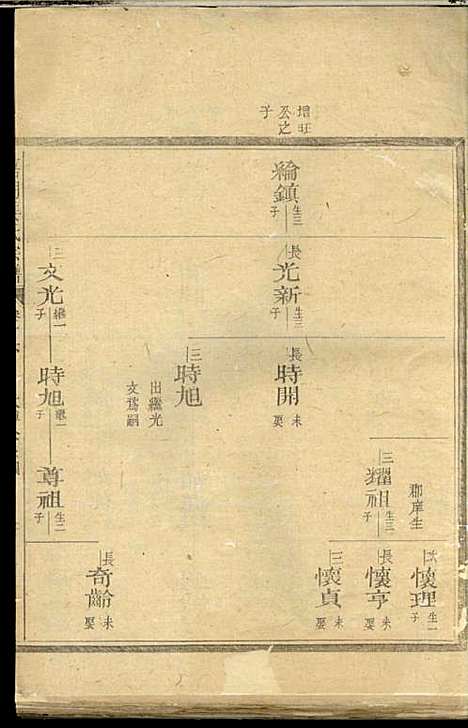 增旺
公之
子
綸鎮
生三
子
長
光新
生三
子
長
時開
未
娶
三
時旭
出繼光
文為嗣
三
耀祖
生三
子
郡庠生
次
懷理
生一
子
長
懷亨
未
娶
三
懷貞
未
娶
三
文光
繼一
子
時旭
繼一
子
尊祖
生二
子
長
奇齡
未
娶